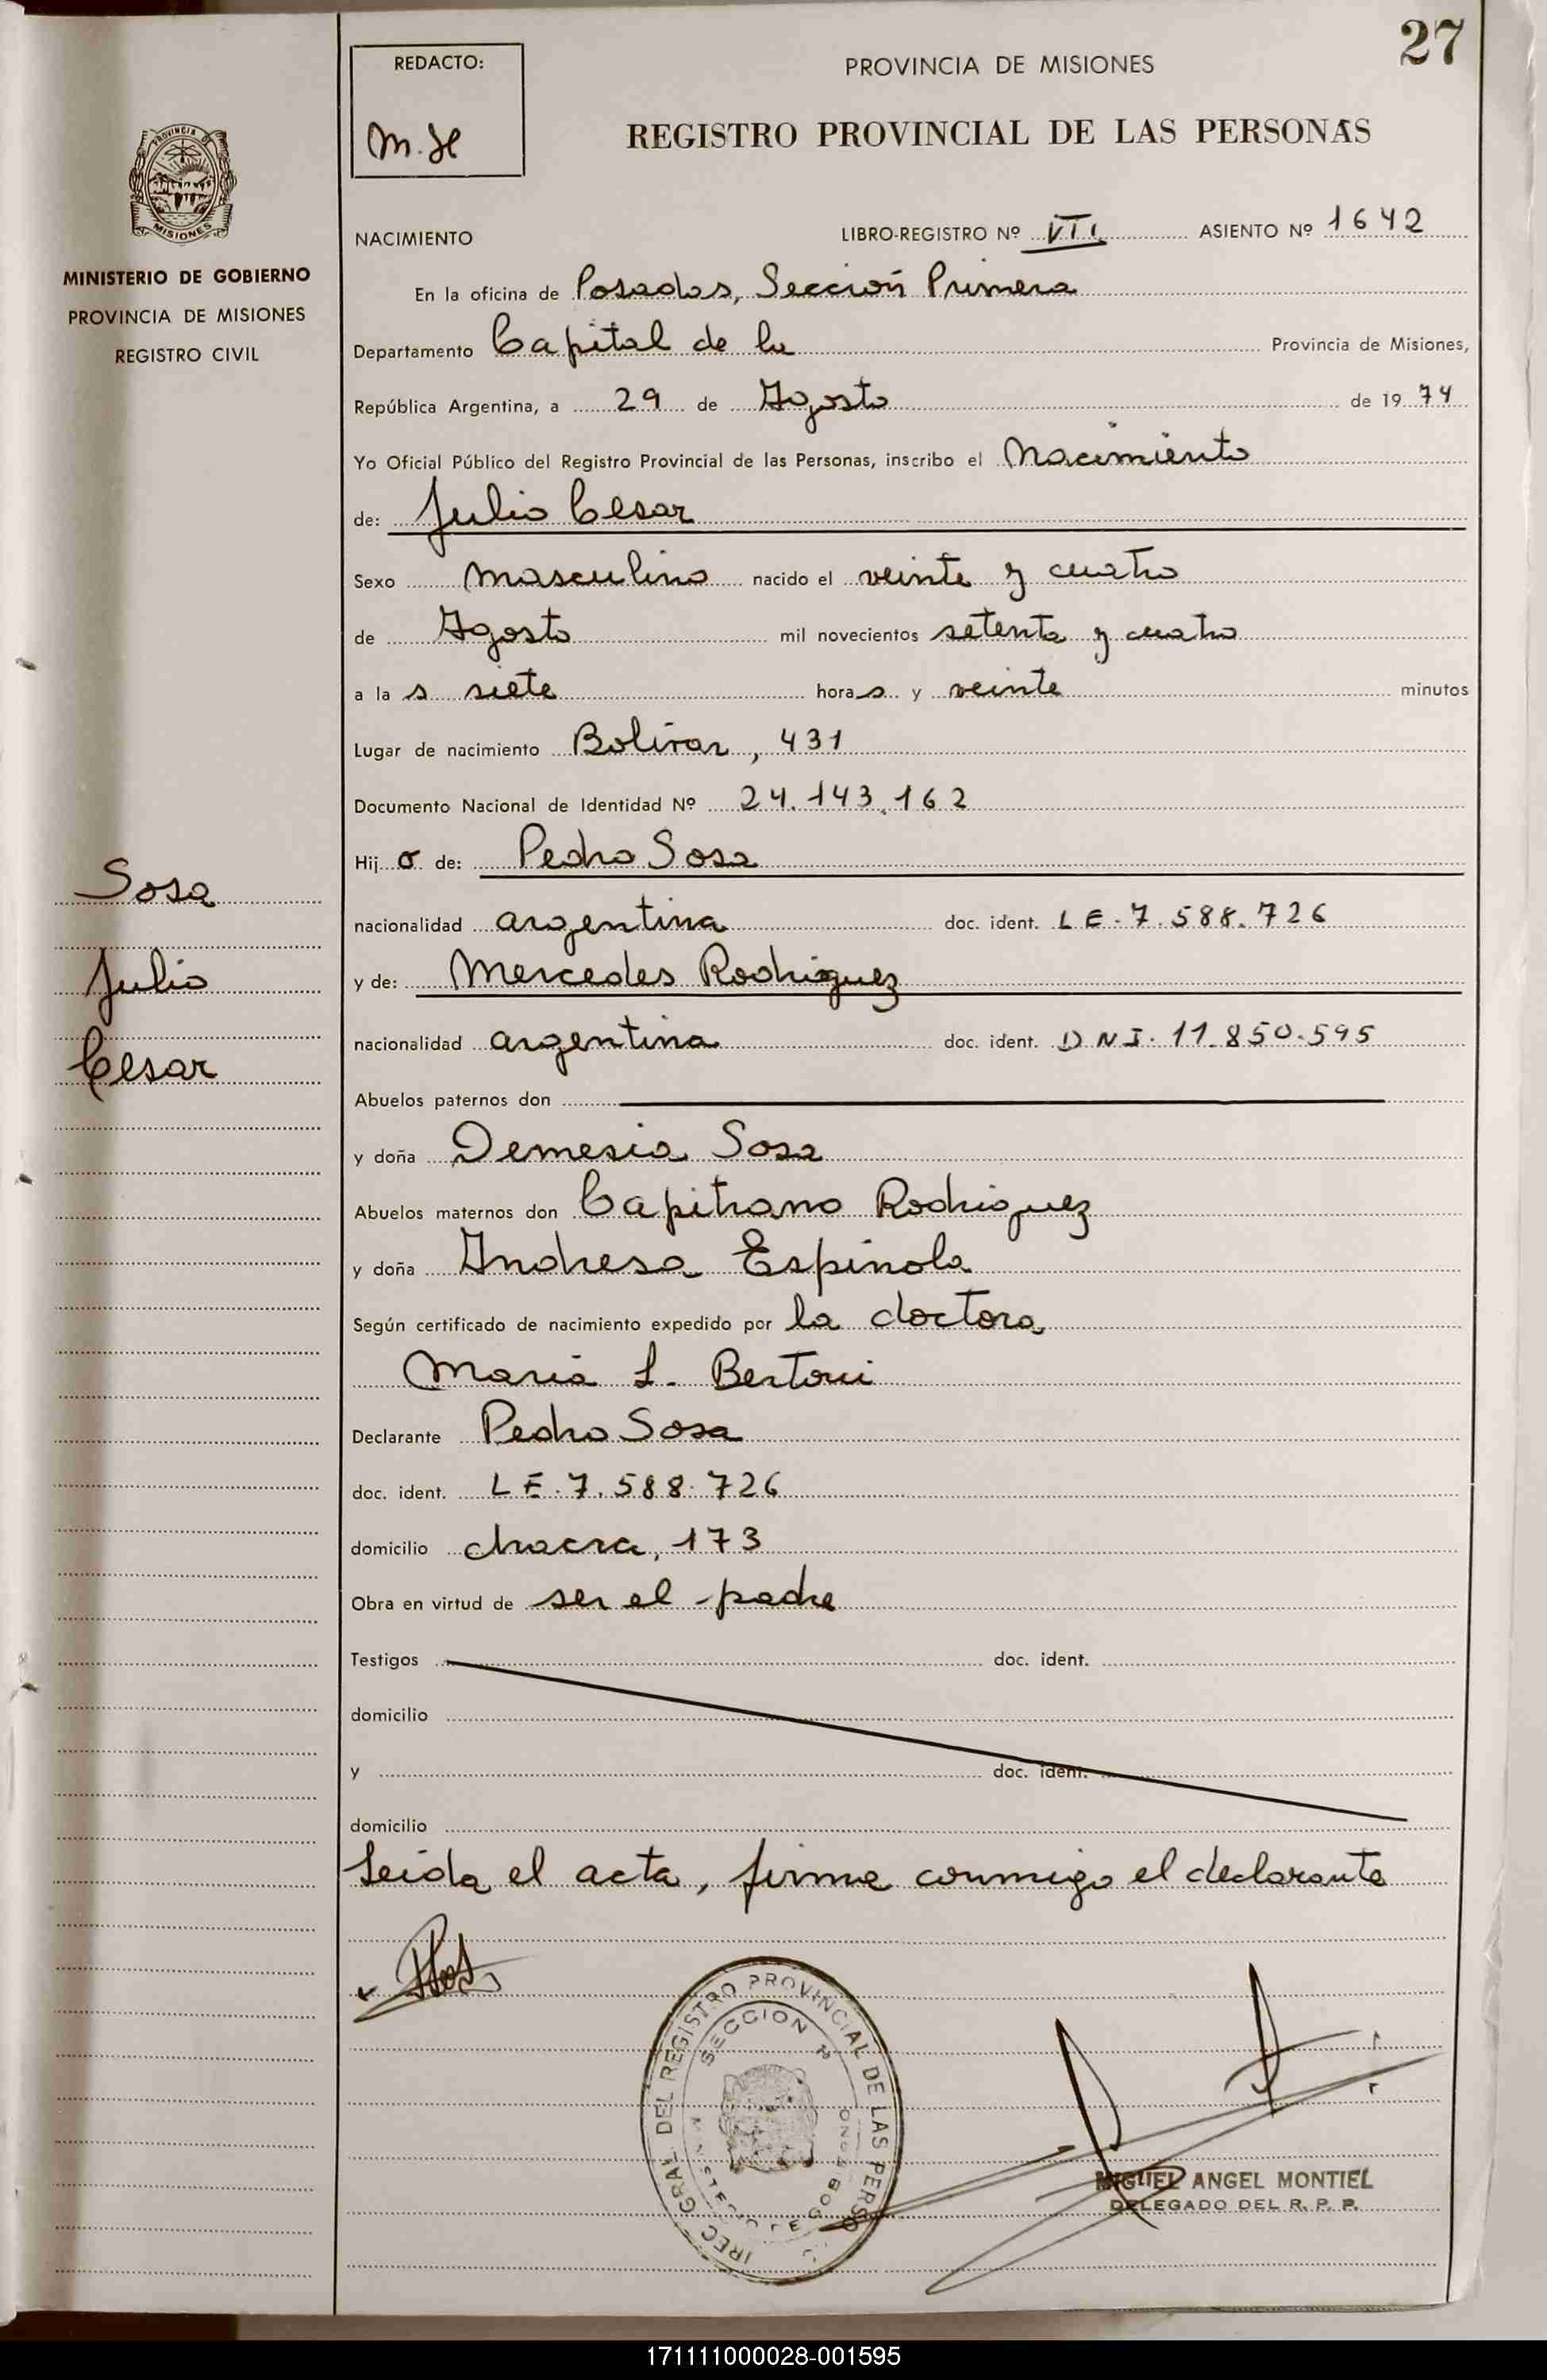 27
REDACTO:
M. H
PROVINCIA DE MISIONES
REGISTRO PROVINCIAL DE LAS PERSONAS
PROVINCIA DE
MISIONES
MINISTERIO DE GOBIERNO
PROVINCIA DE MISIONES
REGISTRO CIVIL
NACIMIENTO LIBRO-REGISTRO Nº VII ASIENTO Nº 1642
En la oficina de Posadas, Sección Primera
Departamento Capital de la Provincia de Misiones,
República Argentina, a 29 de Agosto de 1974
Yo Oficial Público del Registro Provincial de las Personas, inscribo el Nacimiento
de: Julio Cesar
Sexo masculino nacido el veinte y cuatro
de Agosto mil novecientos setenta y cuatro
a las siete horas y veinte minutos
Lugar de nacimiento Bolivar, 431
Documento Nacional de Identidad Nº 24.143.162
Hijo de: Pedro Sosa
nacionalidad argentina doc. ident. LE-7.588.726
y de: Mercedes Rodriguez
nacionalidad argentina doc. ident. DNI. 11.850.595
Abuelos paternos don
y doña Demesia Sosa
Abuelos maternos don Capitrano Rodriguez
y doña Andresa Espinola
Según certificado de nacimiento expedido por la doctora
Maria L. Bertoni
Declarante Pedro Sosa
doc. ident. LE.7.588.726
domicilio chacra, 173
Obra en virtud de ser el padre
Testigos doc. ident.
domicilio
y doc. ident.
domicilio
Leida el acta, firma conmigo el declarante
Sosa
Julio
Cesar
DEL REGISTRO PROVINCIAL DE LAS
SECCION 1ª
MIGUEL ANGEL MONTIEL
DELEGADO DEL R. P. P.
171111000028-001595